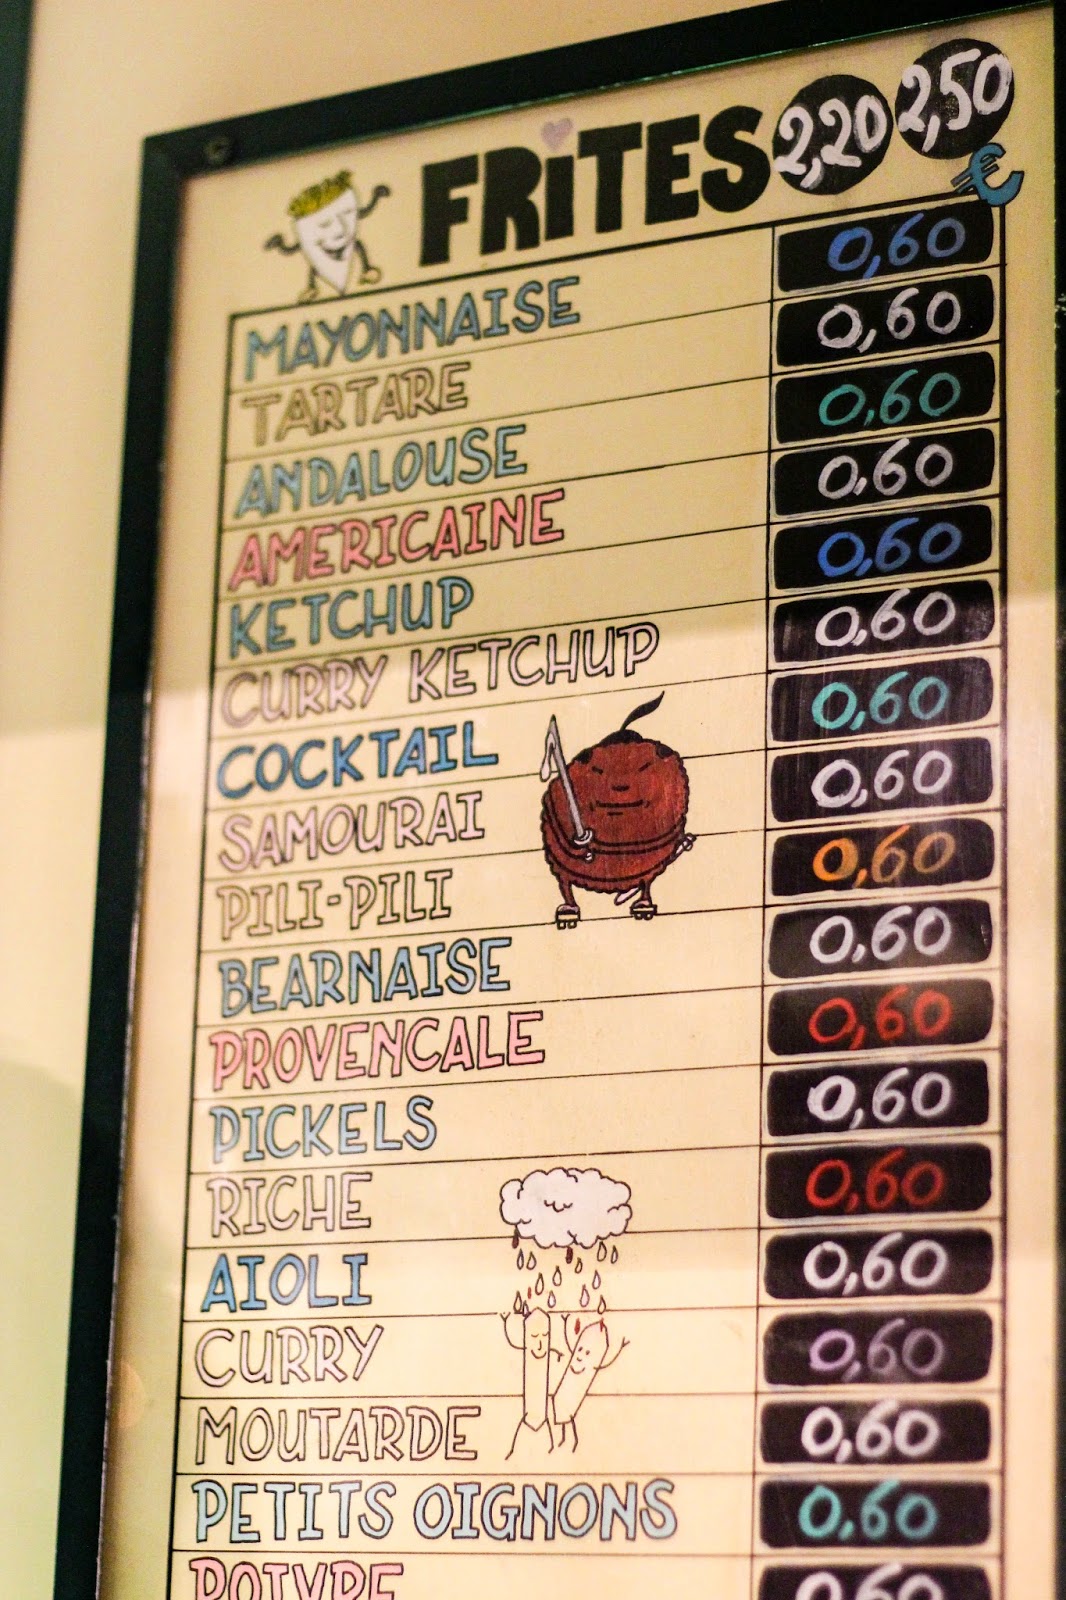 FRiTES 2,20 2,50
€
MAYONNAISE 0,60
TARTARE 0,60
ANDALOUSE 0,60
AMERICAINE 0,60
KETCHUP 0,60
CURRY KETCHUP 0,60
COCKTAIL 0,60
SAMOURAI 0,60
PILI-PILI 0,60
BEARNAISE 0,60
PROVENCALE 0,60
PICKELS 0,60
RICHE 0,60
AIOLI 0,60
CURRY 0,60
MOUTARDE 0,60
PETITS OIGNONS 0,60
POIVRE 0,60